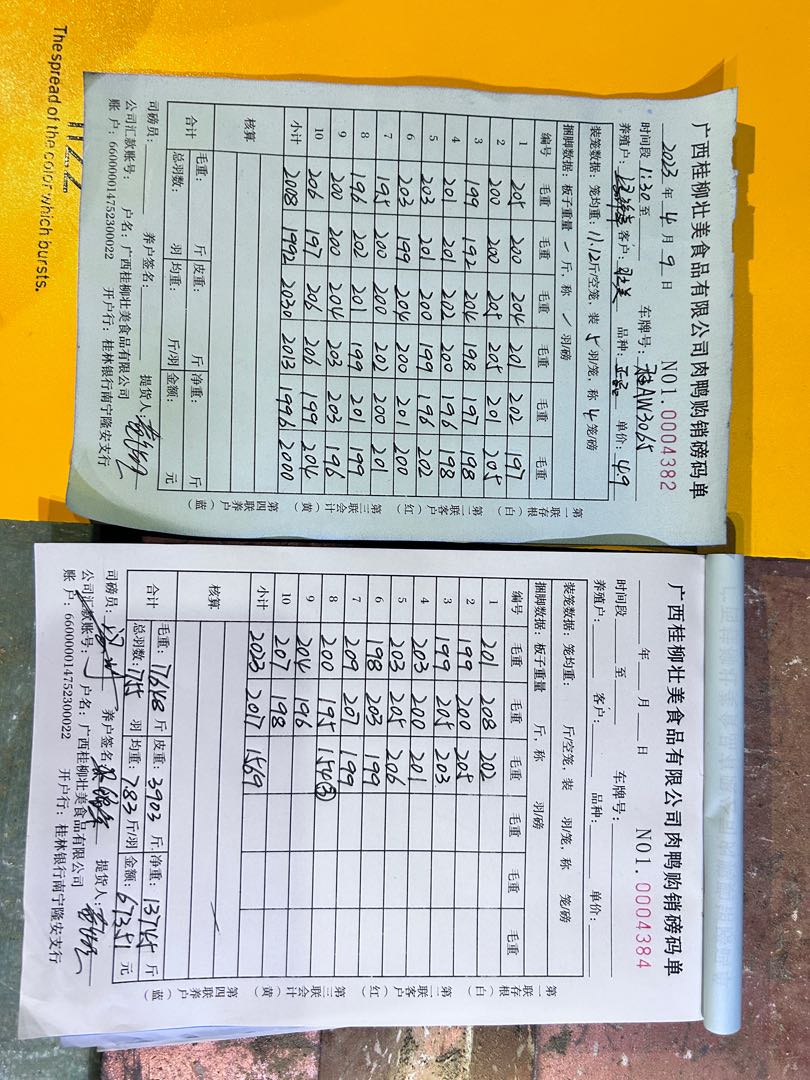 The spread of the color which bursts.
广西桂柳壮美食品有限公司肉鸭购销磅码单
2023年4月9日 NO1.0004382
时间段 1:30 至 车牌号:桂AW3065
养殖户: 客户:壮美 品种: 单价:4.9
装笼数据:笼均重:11.12斤/空笼,装5羽/笼,称4笼/磅
捆脚数据:板子重量 / 斤,称 / 羽/磅
编号 毛重 毛重 毛重 毛重 毛重 毛重
1 205 200 204 201 202 197
2 200 200 205 205 201 205
3 199 192 204 198 197 198
4 201 201 202 200 196 198
5 203 201 200 199 196 202
6 203 199 204 200 201 200
7 195 200 200 202 200 201
8 196 202 201 199 201 199
9 200 200 204 203 203 196
10 206 197 206 206 199 204
小计 2008 1992 2030 2013 1996 2000
核算
合计 毛重: 斤 皮重: 斤 净重: 斤
总羽数: 羽 均重: 斤/羽 金额: 元
司磅员: 养户签名: 提货人:
公司汇款账号: 户名:广西桂柳壮美食品有限公司
账户:660000014752300022 开户行:桂林银行南宁隆安支行
第一联存根(白)
第二联客户(红)
第三联会计(黄)
第四联养户(蓝)
广西桂柳壮美食品有限公司肉鸭购销磅码单
年 月 日 NO1.0004384
时间段 至 车牌号:
养殖户: 客户: 品种: 单价:
装笼数据:笼均重: 斤/空笼,装 羽/笼,称 笼/磅
捆脚数据:板子重量 斤,称 羽/磅
编号 毛重 毛重 毛重 毛重 毛重 毛重
1 201 208 202
2 199 200 205
3 199 205 203
4 203 200 201
5 203 205 206
6 198 203 199
7 209 207 199
8 200 195 154③
9 204 196
10 207 198
小计 2023 2017 1569
核算
合计 毛重:17648 斤 皮重:3903 斤 净重:13745 斤
总羽数:1755 羽 均重:7.83 斤/羽 金额:67351 元
司磅员: 养户签名: 提货人:
公司汇款账号: 户名:广西桂柳壮美食品有限公司
账户:660000014752300022 开户行:桂林银行南宁隆安支行
第一联存根(白)
第二联客户(红)
第三联会计(黄)
第四联养户(蓝)